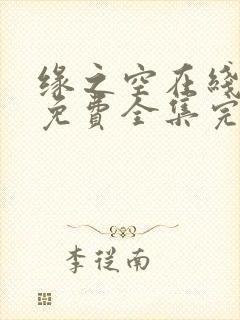 缘之空在綫
免費全集完
李從南